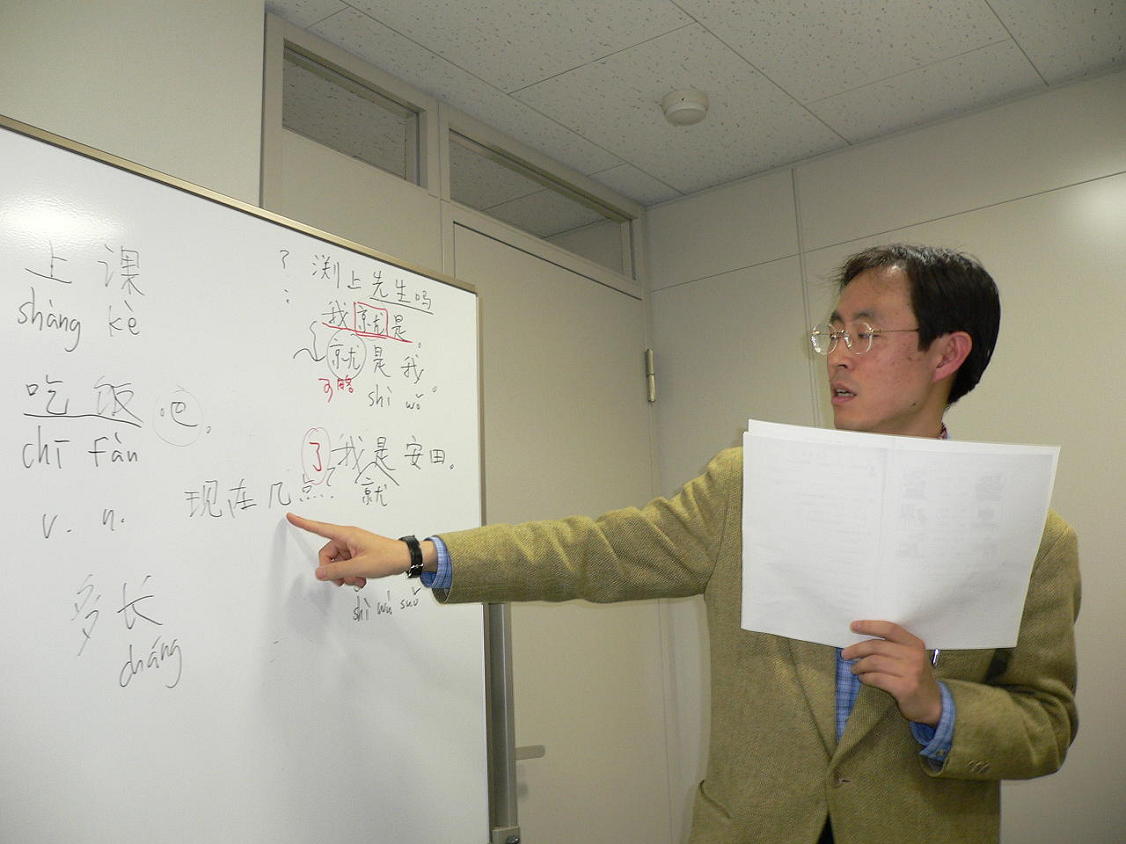 上课
shàng kè
吃饭吧。
chī fàn
v. n.
多长
cháng
? 渕上先生吗
:
我就是。
就是我。
shì wǒ
了我是安田。
就
现在几点?
shì wù suǒ